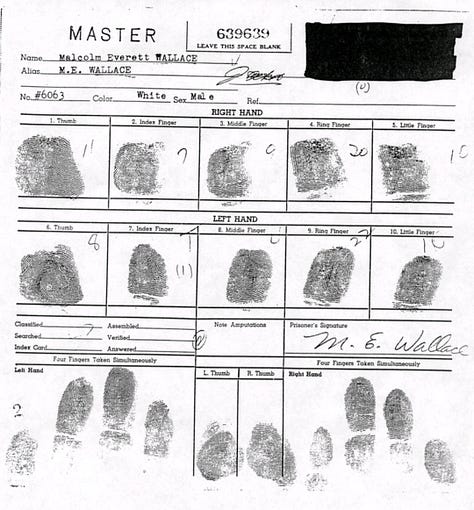 MASTER
639639
LEAVE THIS SPACE BLANK
Name Malcolm Everett WALLACE
Alias M.E. WALLACE
(0)
No. #6063 Color White Sex Male Ref.
RIGHT HAND
1. Thumb 2. Index Finger 3. Middle Finger 4. Ring Finger 5. Little Finger
11 7 9 20 10
LEFT HAND
6. Thumb 7. Index Finger 8. Middle Finger 9. Ring Finger 10. Little Finger
8
(1)
Classified Assembled Note Amputations Prisoner's Signature
Searched Verified
M. E. Wallace
Index Card Answered
Four Fingers Taken Simultaneously Four Fingers Taken Simultaneously
Left Hand L. Thumb R. Thumb Right Hand
2